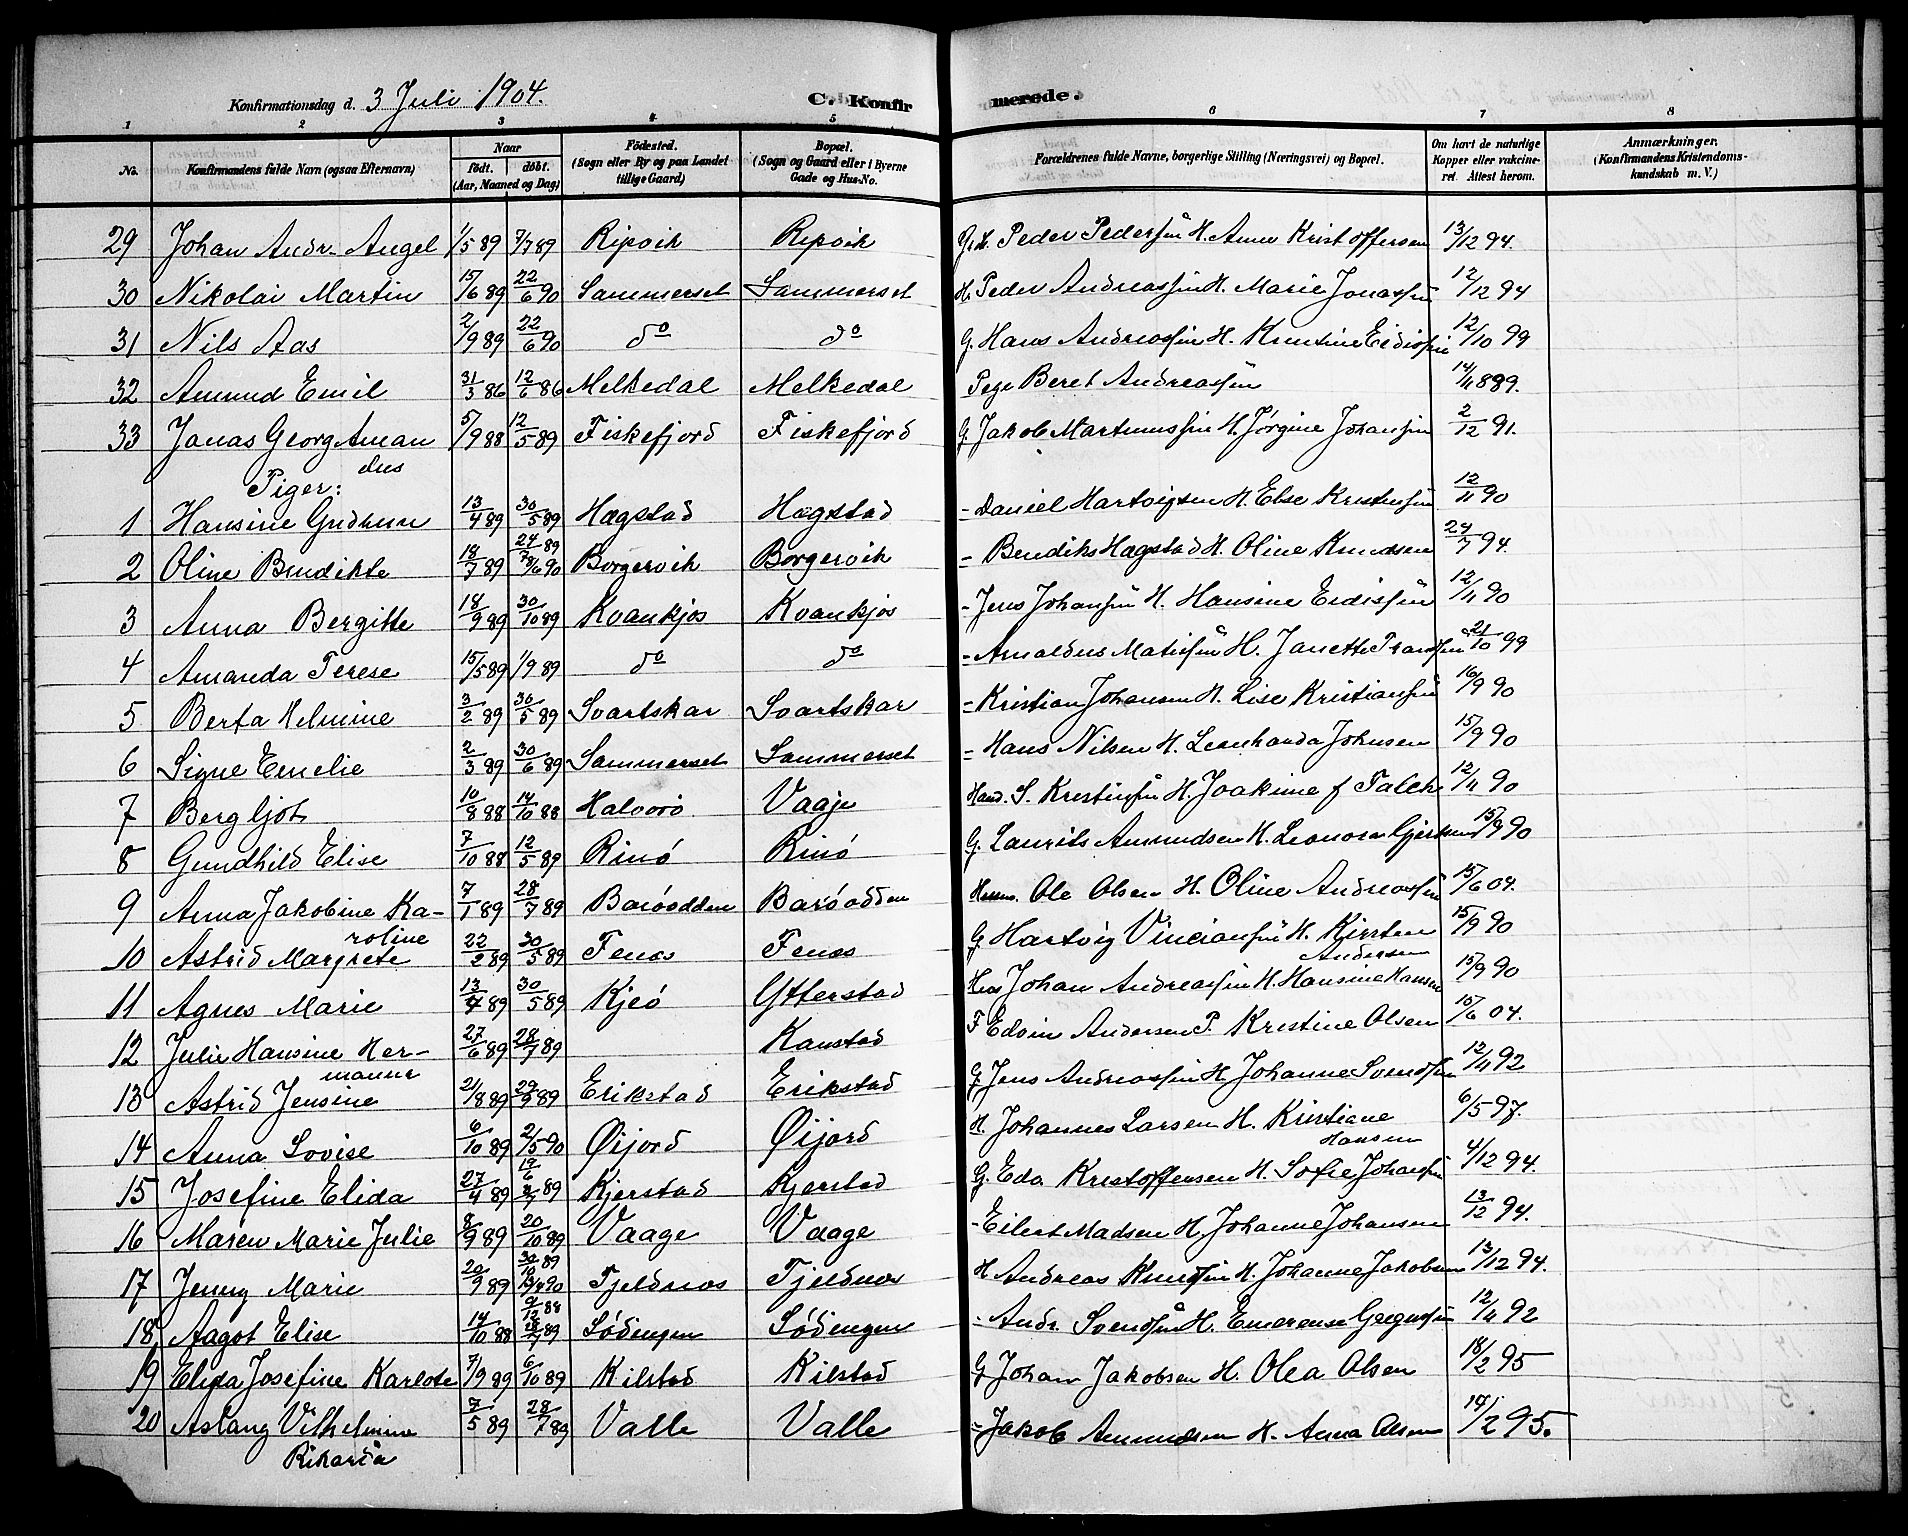 Konfirmationsdag d. 3 Juli 1904. C. Konfirmerede.
1 2 3 4 5 6 7 8
No. Konfirmandens fulde Navn (ogsaa Efternavn) Naar født. døbt. (Aar, Maaned og Dag) Fødested. (Sogn eller By og paa Landet tillige Gaard) Bopæl. (Sogn og Gaard eller i Byerne Gade og Hus-No. Forældrenes fulde Navne, borgerlige Stilling (Næringsvei) og Bopæl. Om havt de naturlige Kopper eller vaccineret. Attest herom. Anmærkninger. (Konfirmandens Kristendomskundskab m. V.)
29 Johan Andr. Angel 1/5 89 7/7 89 Ripvik Ripvik Peder Pedersen H. Anne Kristoffersen 13/12 94.
30 Nikolai Martin 15/6 89 22/6 90 Sammerset Sammerset H. Peder Andreassen H. Marie Jonassen 12/12 94
31 Nils Aas 2/9 89 22/6 90 do do G. Hans Andreassen H. Kristine Eidissen 12/10 99
32 Amund Emil 31/3 86 12/6 86 Melkedal Melkedal Pige Beret Andreassen 14/4 889.
33 Jonas Georg Amandus 5/9 88 12/5 89 Fiskefjord Fiskefjord G. Jakob Martinussen H. Jørgine Johansen 2/12 91.
Piger:
1 Hansine Gudhun 13/4 89 30/5 89 Hagstad Hagstad - Daniel Hartvigsen H. Else Kristensen 12/11 90
2 Oline Bendikte 18/7 89 24/7 89 8/6 90 Borgervik Borgervik - Bendiks Hagstad H. Oline Knudsen 24/7 94.
3 Anna Bergitte 18/9 89 30/10 89 Kvankjos Kvankjos - Jens Johansen H. Hansine Eidissen 12/11 90
4 Amanda Terese 15/5 89 1/9 89 do do - Arnoldus Matisen H. Janette Fransen 21/10 99
5 Berta Helmine 3/2 89 30/5 89 Svartskar Svartskar - Kristian Johansen H. Lise Kristiansen 16/9 90
6 Signe Emelie 2/3 89 30/6 89 Sammerset Sammerset - Hans Nilsen H. Leonharda Johnsen 15/9 90
7 Bergljot 10/8 88 14/10 88 Halvorø Vaaje Hand. S. Kristensen H. Joakime f Falch 12/11 90
8 Gundhild Elise 7/10 88 12/5 89 Rinø Rinø G. Laurits Amundsen H. Leonora Gjertsen 15/9 90
9 Anna Jakobine Karoline 7/1 89 28/7 89 Barøodden Barøodden Husm. Ole Olsen H. Oline Andreassen 15/6 04.
10 Astrid Margrete 22/2 89 30/5 89 Fenes Fenes G. Hartvig Vinciansen H. Kirsten Andersen 15/9 90
11 Agnes Marie 13/4 89 30/5 89 Kjeø Ytterstad Johan Andreassen H. Hansine Hansen 15/9 90
12 Julie Hansine Hermanne 27/6 89 28/7 89 Kanstad F Edvin Andersen P. Kristine Olsen 15/6 04.
13 Astrid Jensine 21/8 89 29/9 89 Erikstad Erikstad G. Jens Andreassen H. Johanne Svendsen 12/11 92
14 Anna Lovise 6/10 89 2/5 90 Øijord Øijord H. Johannes Larsen H. Kristiane Hansen 6/5 97.
15 Josefine Elida 27/4 89 Kjerstad Kjerstad G. Edv Kristoffersen H. Sofie Johansen 4/12 94.
16 Maren Marie Julie 8/9 89 20/10 89 Vaage Vaage - Eilert Madsen H. Johanne Johansen 13/12 94.
17 Jenny Marie 20/9 89 30/10 89 Tjeldnes Tjeldnes H Andreas Knudsen H. Johanne Jakobsen 13/12 94.
18 Aagot Elise 14/10 88 9/12 88 Lødingen Lødingen - Andr. Svendsen H. Emerense Gregussen 12/11 92
19 Elida Josefine Karlote 7/9 89 6/10 89 Kilstad Kilstad G Johan Jakobsen H. Olea Olsen 18/2 95
20 Aslaug Vilhelmine Rikarda 7/5 89 28/7 89 Valle Valle - Jakob Amundsen H. Anna Olsen 14/2 95.